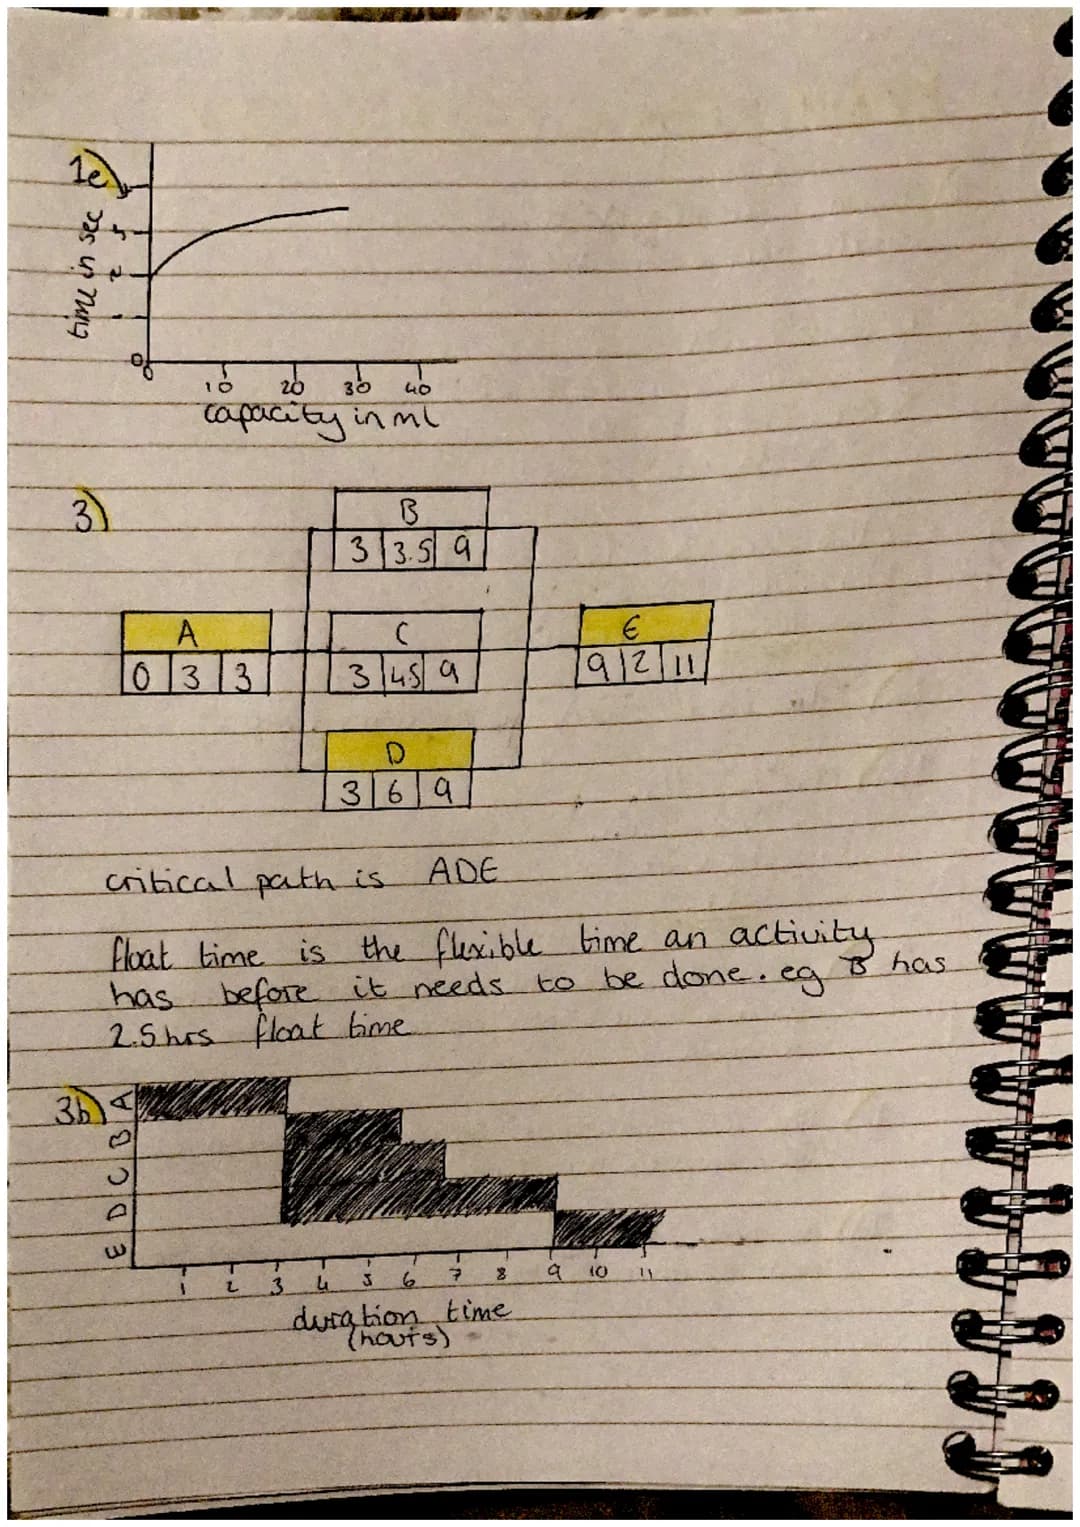 1e)
time in sec
2
1
0
0 10 20 30 40
capacity in ml
3)
B
3 3.5 9
A
0 3 3
C
3 4.5 9
E
9 2 11
D
3 6 9
critical path is ADE
float time is the flexible time an activity
has before it needs to be done. eg B has
2.5hrs float time
3b)
A
B
C
D
E
1 2 3 4 5 6 7 8 9 10 11
duration time
(hours)